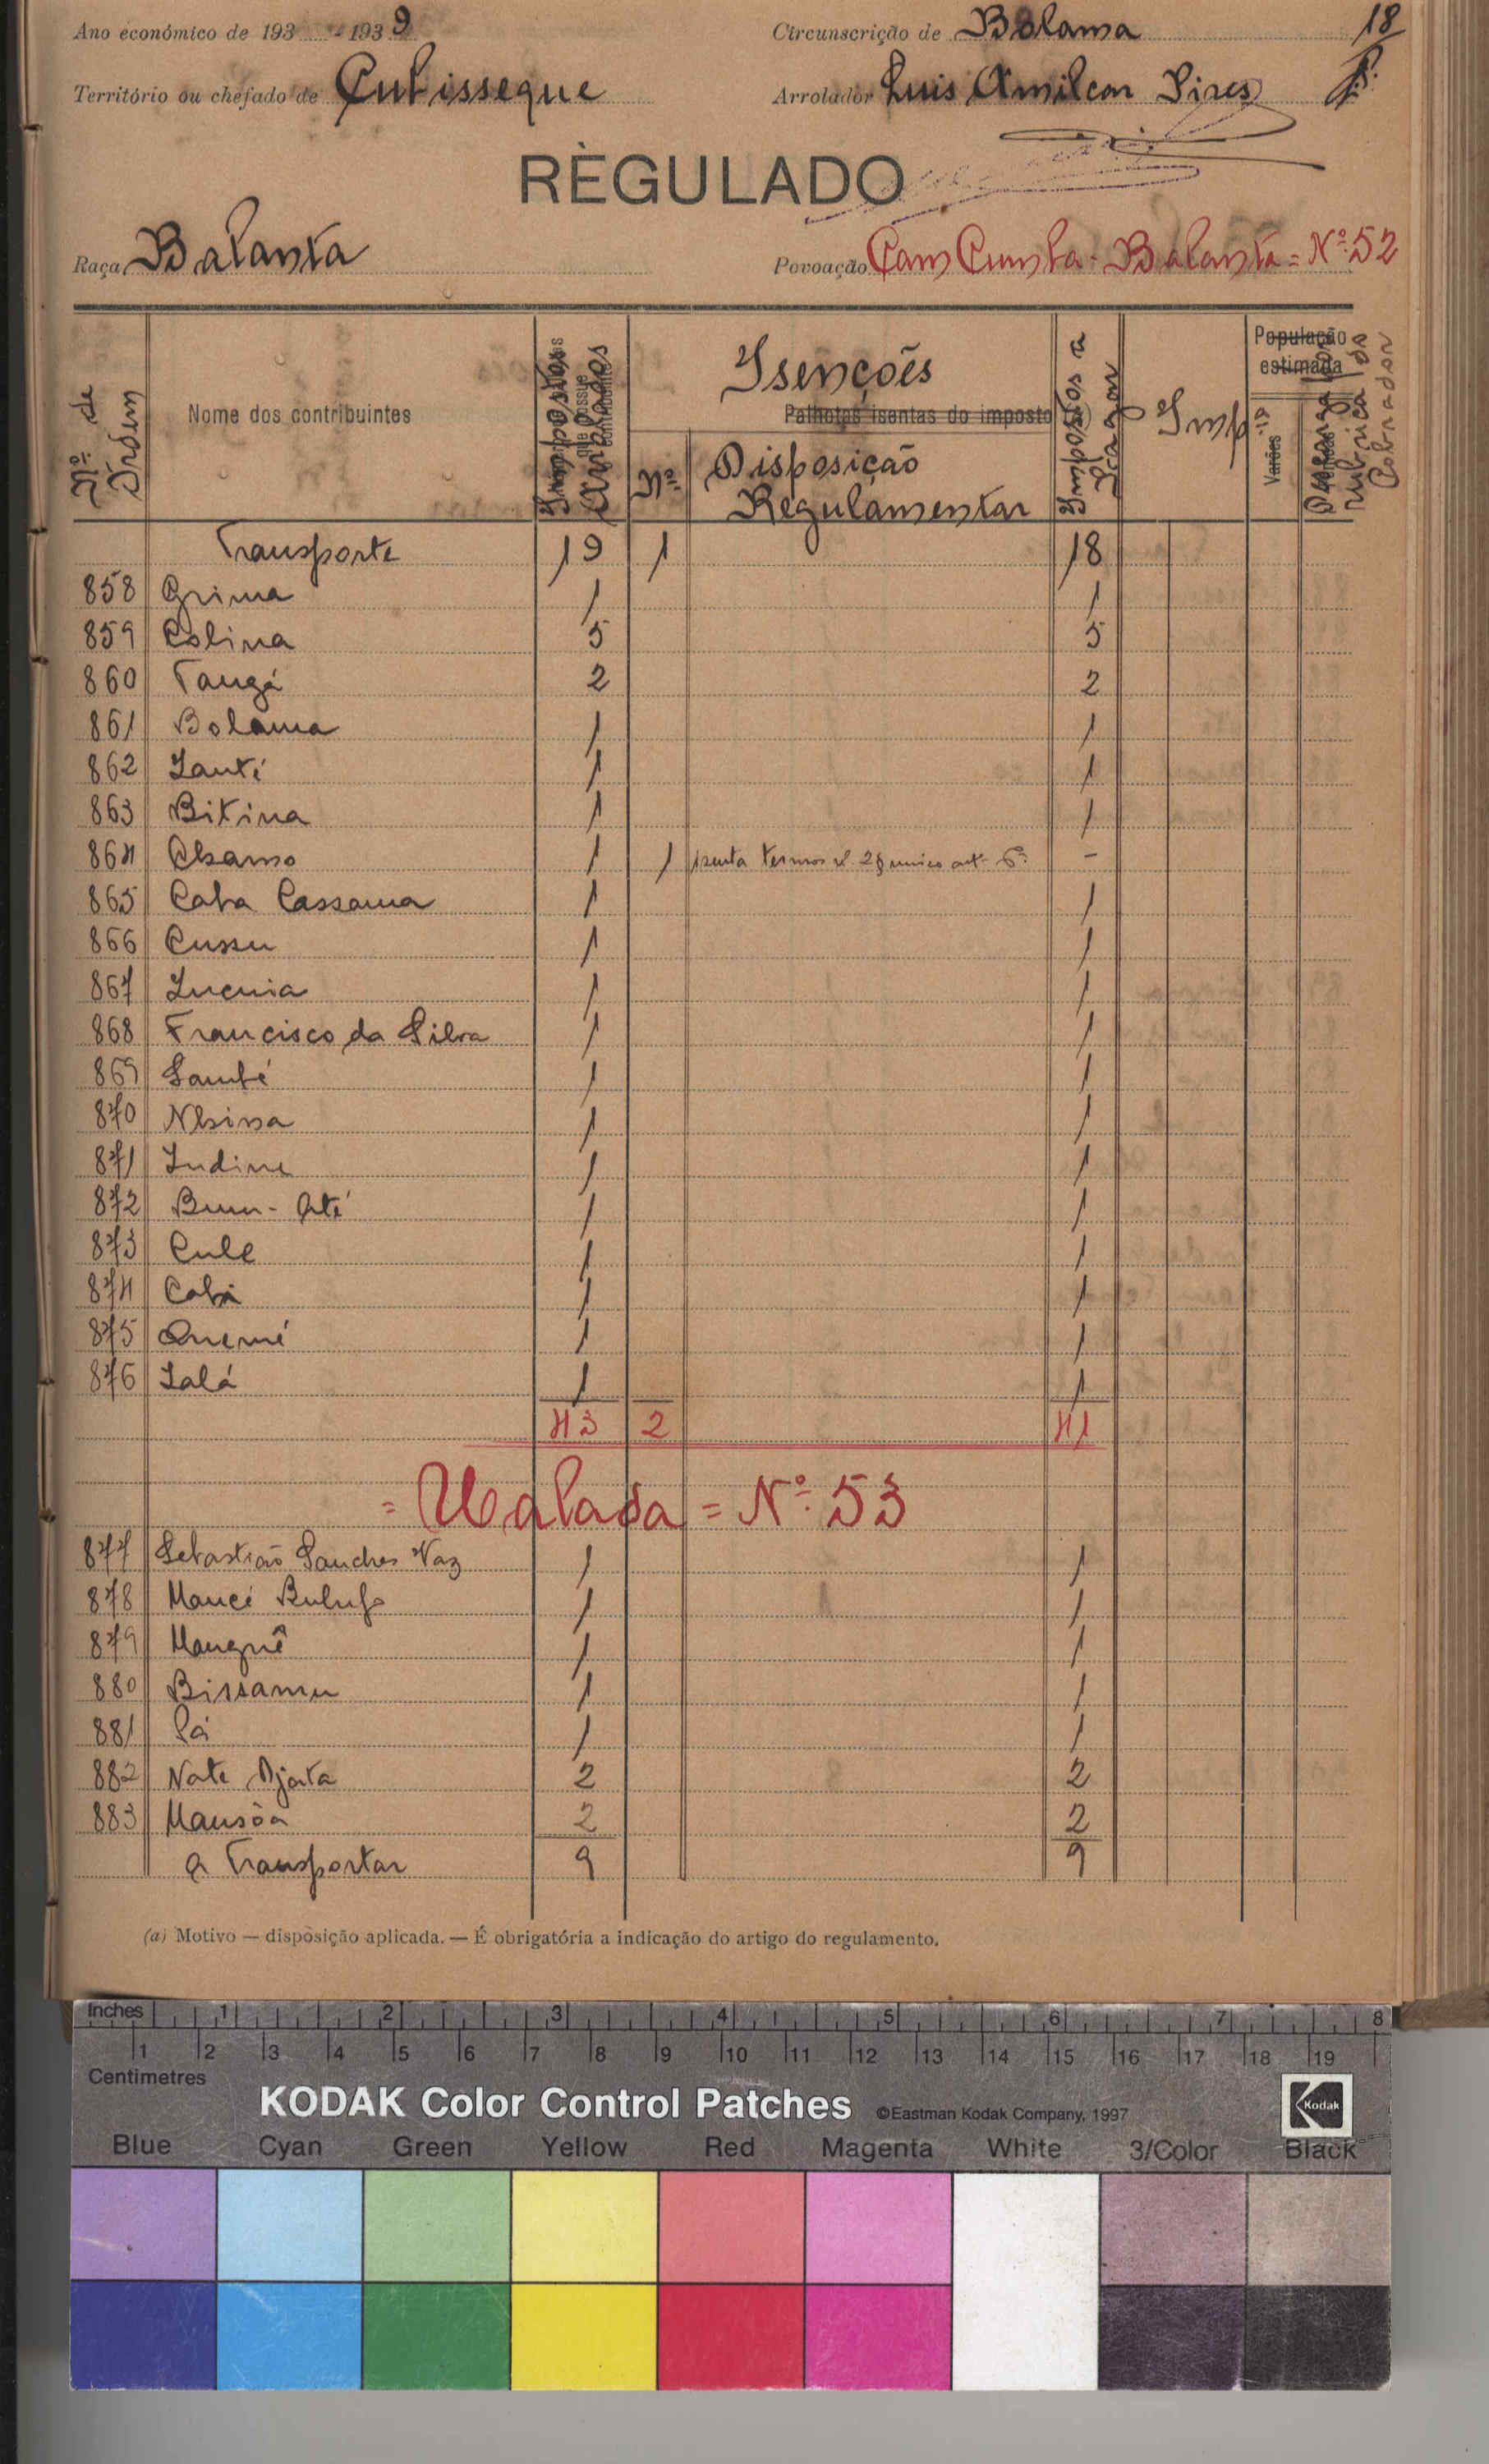 Ano económico de 193 - 1939 Circunscrição de Bolama 18
Território ou chefado de Cubisseque Arrolador Luis Amilcar Pires
RÈGULADO
Raça Balanta Povoação Cam Cumba - Balanta = Nº 52
Nº de Ordem
Nome dos contribuintes
Impostos Arrolados
Isenções
Palhotas isentas do imposto
Nº
Disposição
Regulamentar
Impostos a Pagar
Imp.
População estimada
Varões
rubrica do Cobrador
Transporte 19 1 18
858 Grima 1 1
859 Colina 5 5
860 Tangá 2 2
861 Bolama 1 1
862 Ianti 1 1
863 Bitina 1 1
864 1 1 termos 2 § unico art. 6º -
865 Caba Cassama 1 1
866 Cussu 1 1
867 Incuia 1 1
868 Francisco da Silva 1 1
869 Sambé 1 1
870 1 1
871 Indine 1 1
872 Bum-Até 1 1
873 Cule 1 1
874 Cabá 1 1
875 Quemé 1 1
876 Ialá 1 1
43 2 41
= Ualada = Nº 53
877 Sebastião Sanches Vaz 1 1
878 Mancé Bulufo 1 1
879 Manguê 1 1
880 Bissamu 1 1
881 1 1
882 Nate Djata 2 2
883 Mansôa 2 2
a Transportar 9 9
(a) Motivo — disposição aplicada. — É obrigatória a indicação do artigo do regulamento.
Inches 1 2 3 4 5 6 7 8
1 2 3 4 5 6 7 8 9 10 11 12 13 14 15 16 17 18 19
Centimetres
KODAK Color Control Patches ©Eastman Kodak Company, 1997 Kodak
Blue Cyan Green Yellow Red Magenta White 3/Color Black